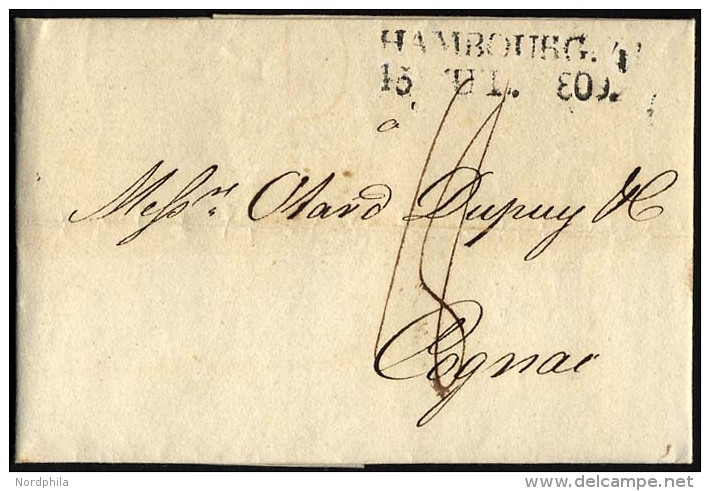 HAMBOURG.
15 JUIL. 809.
à
Messrs Otard Dupuy & C
18
Cognac
Nordphila
delcampe.net